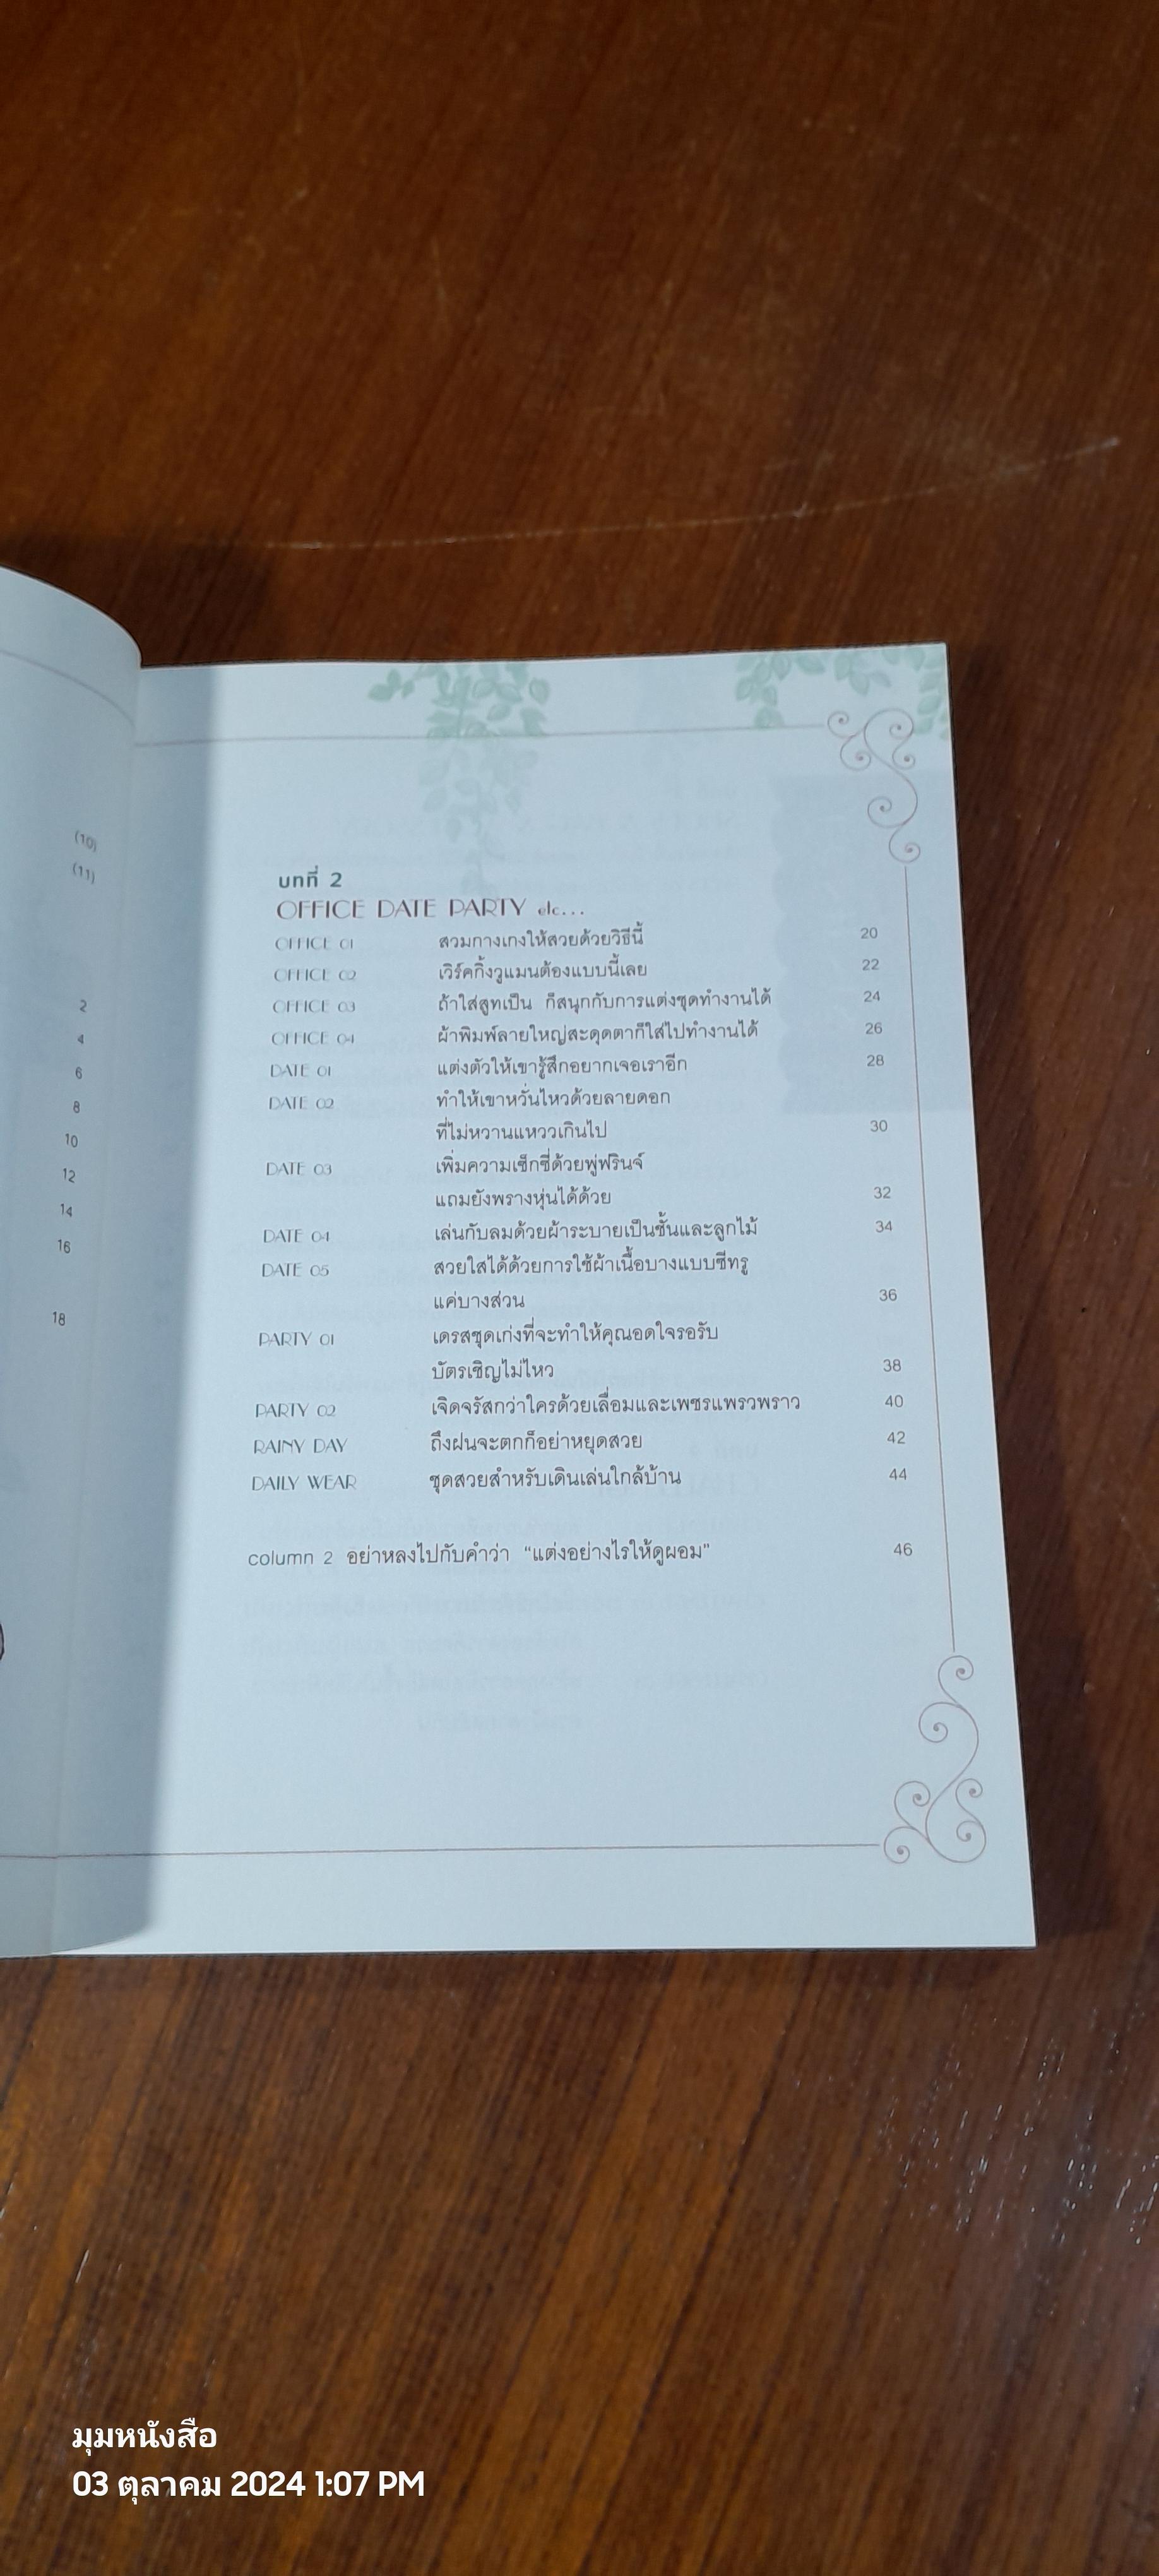 (10)
(11)
2
4
6
8
10
12
14
16
18
บทที่ 2
OFFICE DATE PARTY etc...
OFFICE 01 สวมกางเกงให้สวยด้วยวิธีนี้ 20
OFFICE 02 เวิร์คกิ้งวูแมนต้องแบบนี้เลย 22
OFFICE 03 ถ้าใส่สูทเป็น ก็สนุกกับการแต่งชุดทำงานได้ 24
OFFICE 04 ผ้าพิมพ์ลายใหญ่สะดุดตาก็ใส่ไปทำงานได้ 26
DATE 01 แต่งตัวให้เขารู้สึกอยากเจอเราอีก 28
DATE 02 ทำให้เขาหวั่นไหวด้วยลายดอก
ที่ไม่หวานแหววเกินไป 30
DATE 03 เพิ่มความเซ็กซี่ด้วยพู่ฟรินจ์
แถมยังพรางหุ่นได้ด้วย 32
DATE 04 เล่นกับลมด้วยผ้าระบายเป็นชั้นและลูกไม้ 34
DATE 05 สวยใสได้ด้วยการใช้ผ้าเนื้อบางแบบซีทรู
แค่บางส่วน 36
PARTY 01 เดรสชุดเก่งที่จะทำให้คุณอดใจรอรับ
บัตรเชิญไม่ไหว 38
PARTY 02 เจิดจรัสกว่าใครด้วยเลื่อมและเพชรแพรวพราว 40
RAINY DAY ถึงฝนจะตกก็อย่าหยุดสวย 42
DAILY WEAR ชุดสวยสำหรับเดินเล่นใกล้บ้าน 44
column 2 อย่าหลงไปกับคำว่า “แต่งอย่างไรให้ดูผอม” 46
มุมหนังสือ
03 ตุลาคม 2024 1:07 PM